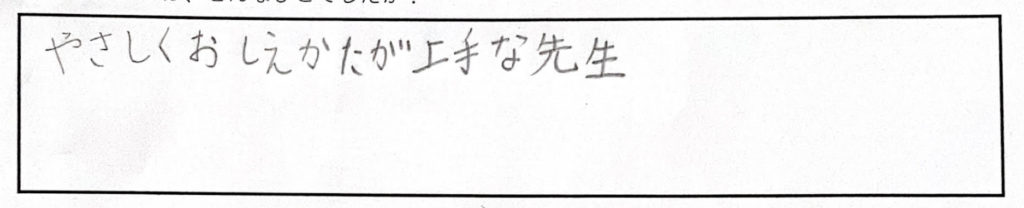 やさしくおしえかたが上手な先生